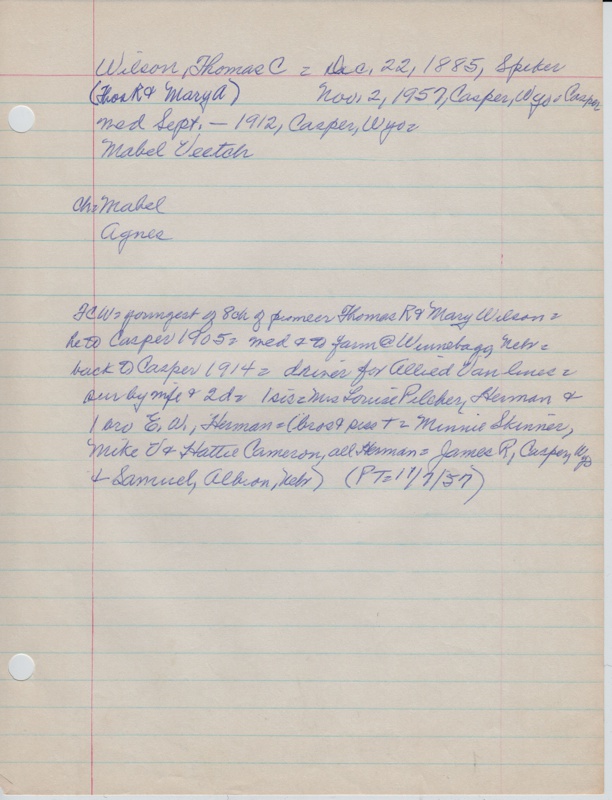 Wilson, Thomas C = Dec. 22, 1885, Spiker
(Thos R & Mary A) Nov. 2, 1957, Casper, Wyo = Casper
med Sept. — 1912, Casper, Wyo =
Mabel Veetch
ch = Mabel
Agnes
TCW = youngest of 8 ch of pioneer Thomas R & Mary Wilson =
he to Casper 1905 = med & to farm @ Winnebago, Nebr =
back to Casper 1914 = driver for Allied Van lines =
sur by wife & 2d = 1 sis = Mrs Louise Pilcher, Herman &
1 bro E. W., Herman = (bros & siss + = Minnie Skinner,
Mike V & Hattie Cameron, all Herman = James R, Casper, Wyo
& Samuel, Albion, Nebr) (PT = 11/7/57)